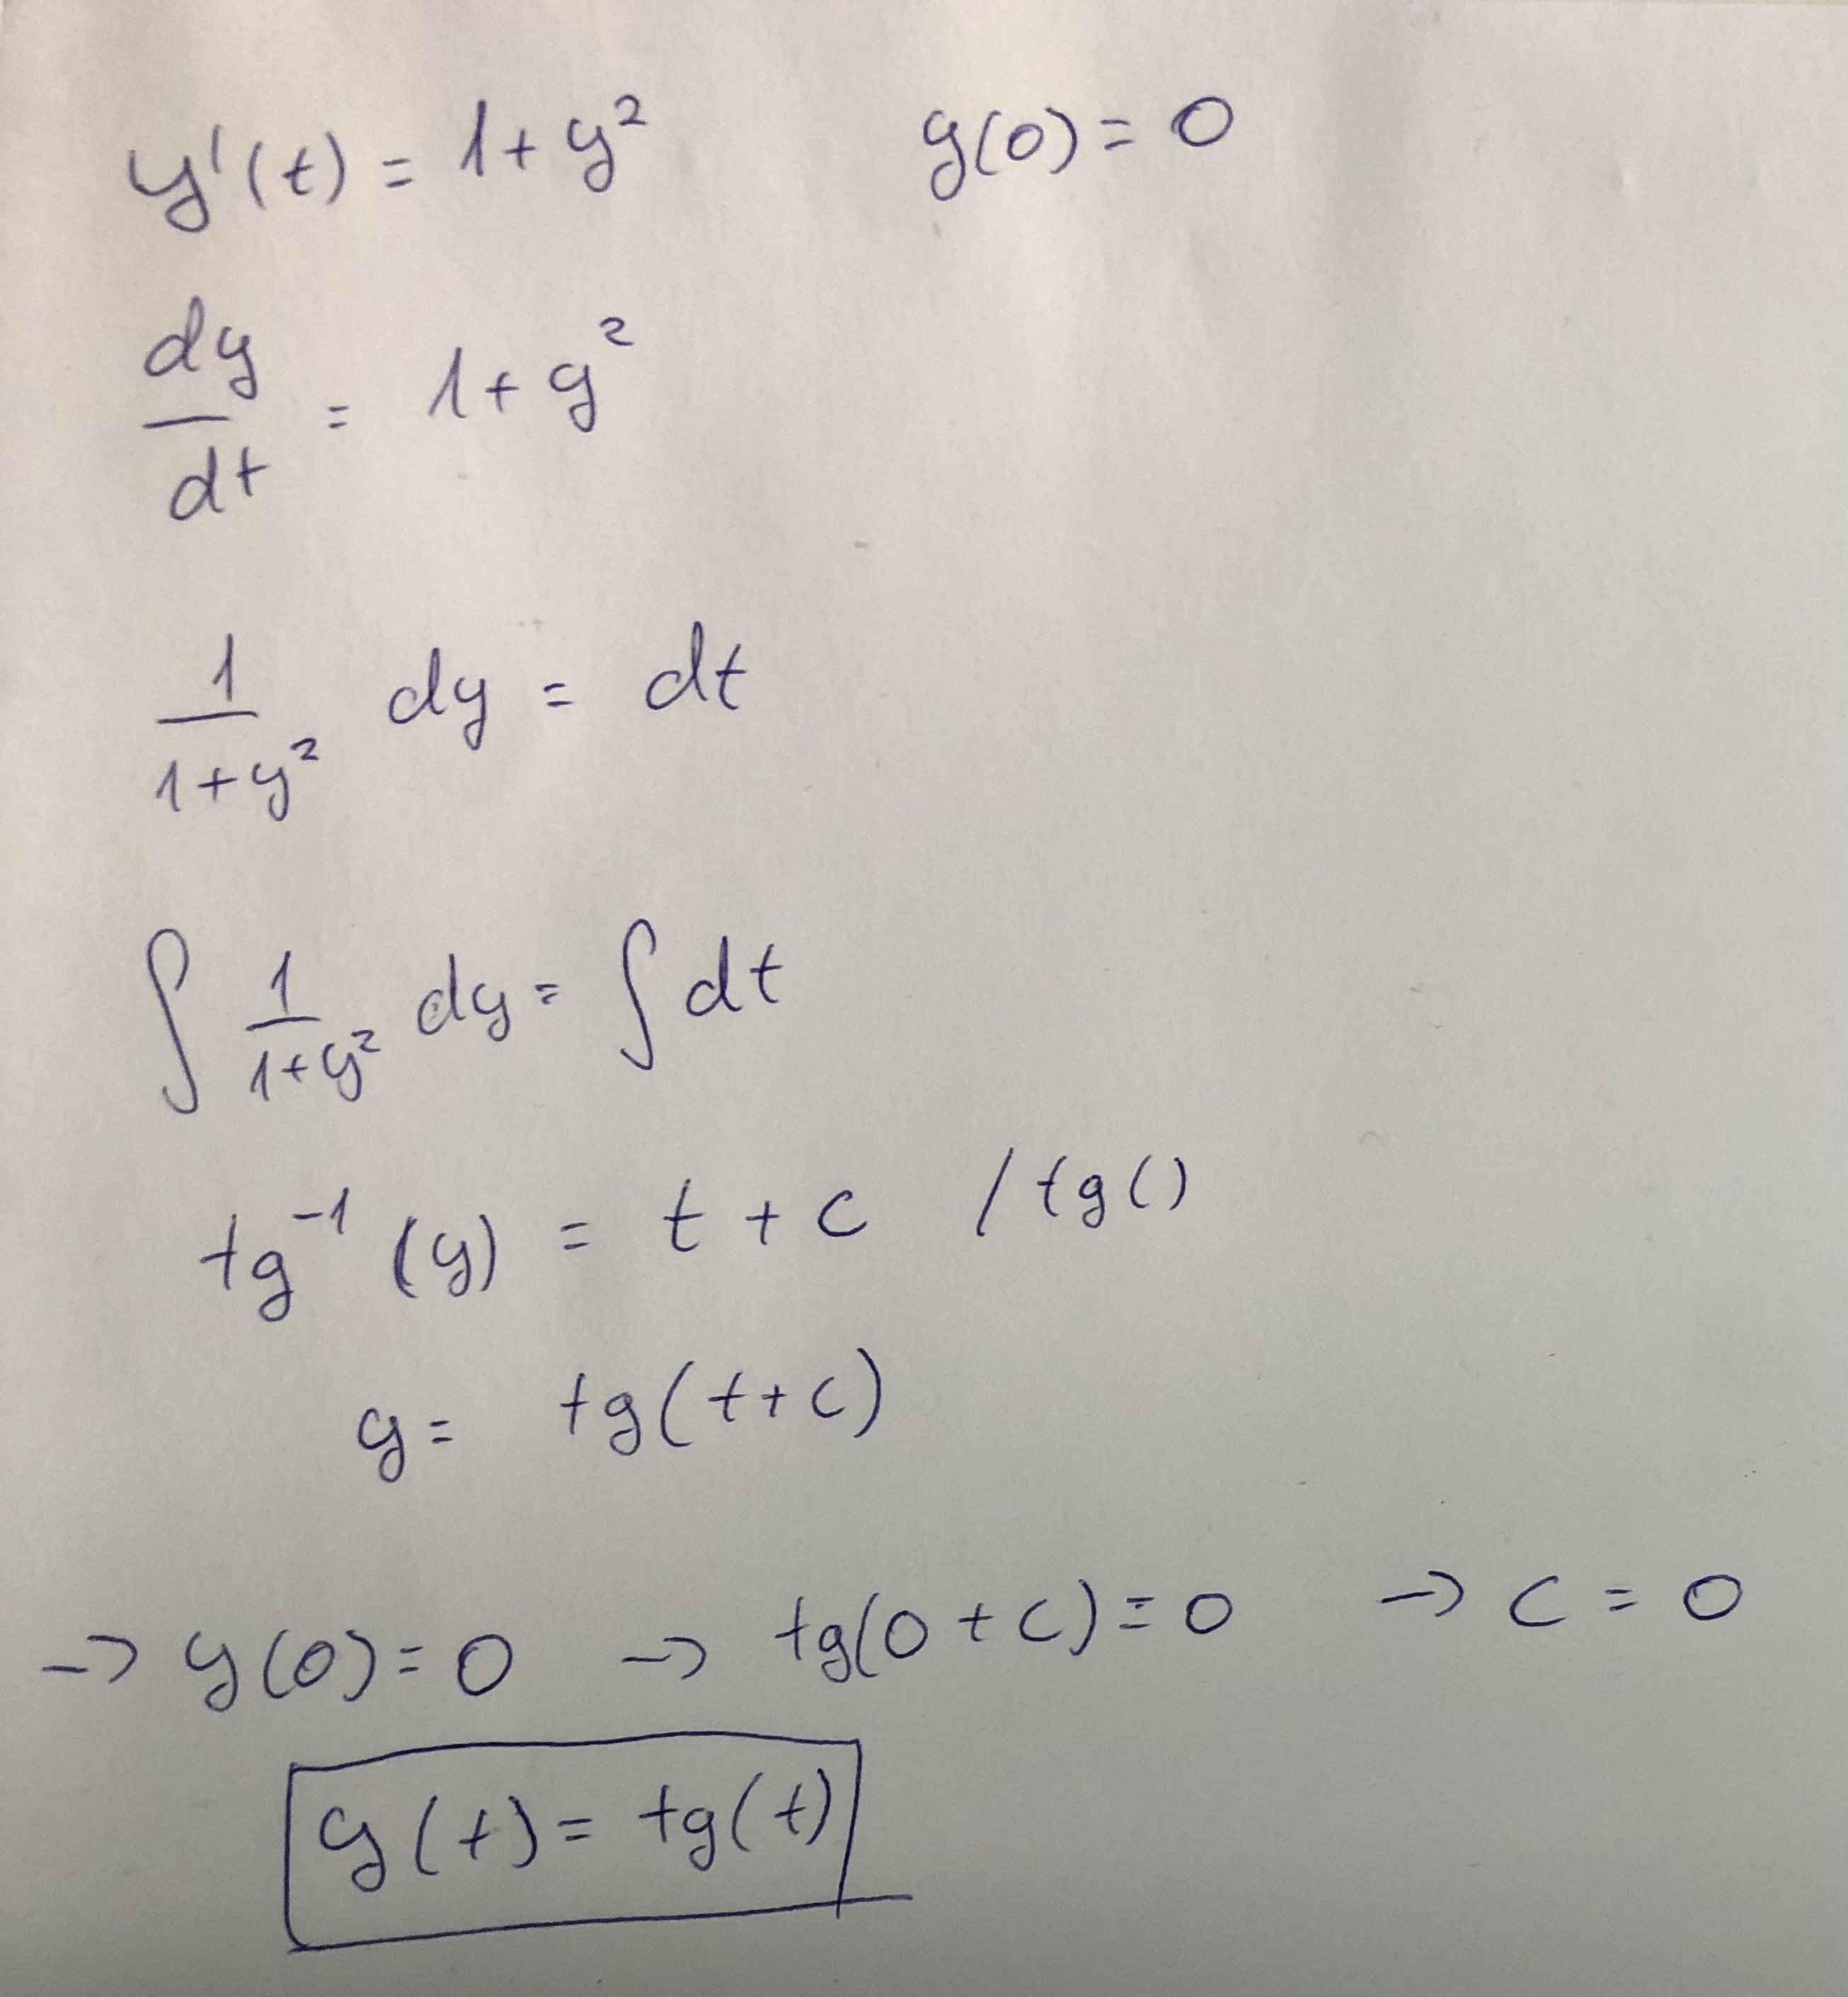 y'(t) = 1 + y² y(0) = 0
dy/dt = 1 + y²
1/(1+y²) dy = dt
∫ 1/(1+y²) dy = ∫ dt
tg⁻¹ (y) = t + c / tg()
y = tg(t+c)
→ y(0) = 0 → tg(0 + c) = 0 → c = 0
y(t) = tg(t)